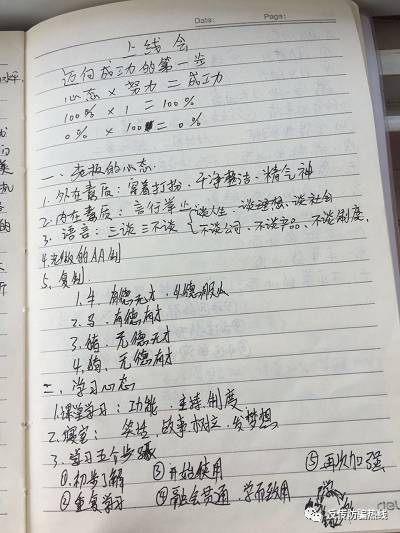 Date:
Page:
上线会
迈向成功的第一步
心态 × 努力 = 成功
100% × 1 = 100%
0% × 100 = 0%
一、老板的心态.
1. 外在素质：穿着打扮.干净整洁.精气神
2. 内在素质：言行举止
3. 语言：三谈三不谈
谈人生.谈理想.谈社会
不谈公司.不谈产品.不谈制度.
4. 老板的AA制
5. 复制
1. 牛.有德无才.
2. 马.有德有才
3. 猪.无德无才
4. 狗.无德有才
二、学习心态
1. 课堂学习：功能.主持.制度
2. 寝室：笑话.故事.树立.梦想
3. 学习五个步骤
①.初步了解
②重复学习
③开始使用
④融会贯通.学而致用
⑤再次加强
反传防骗热线